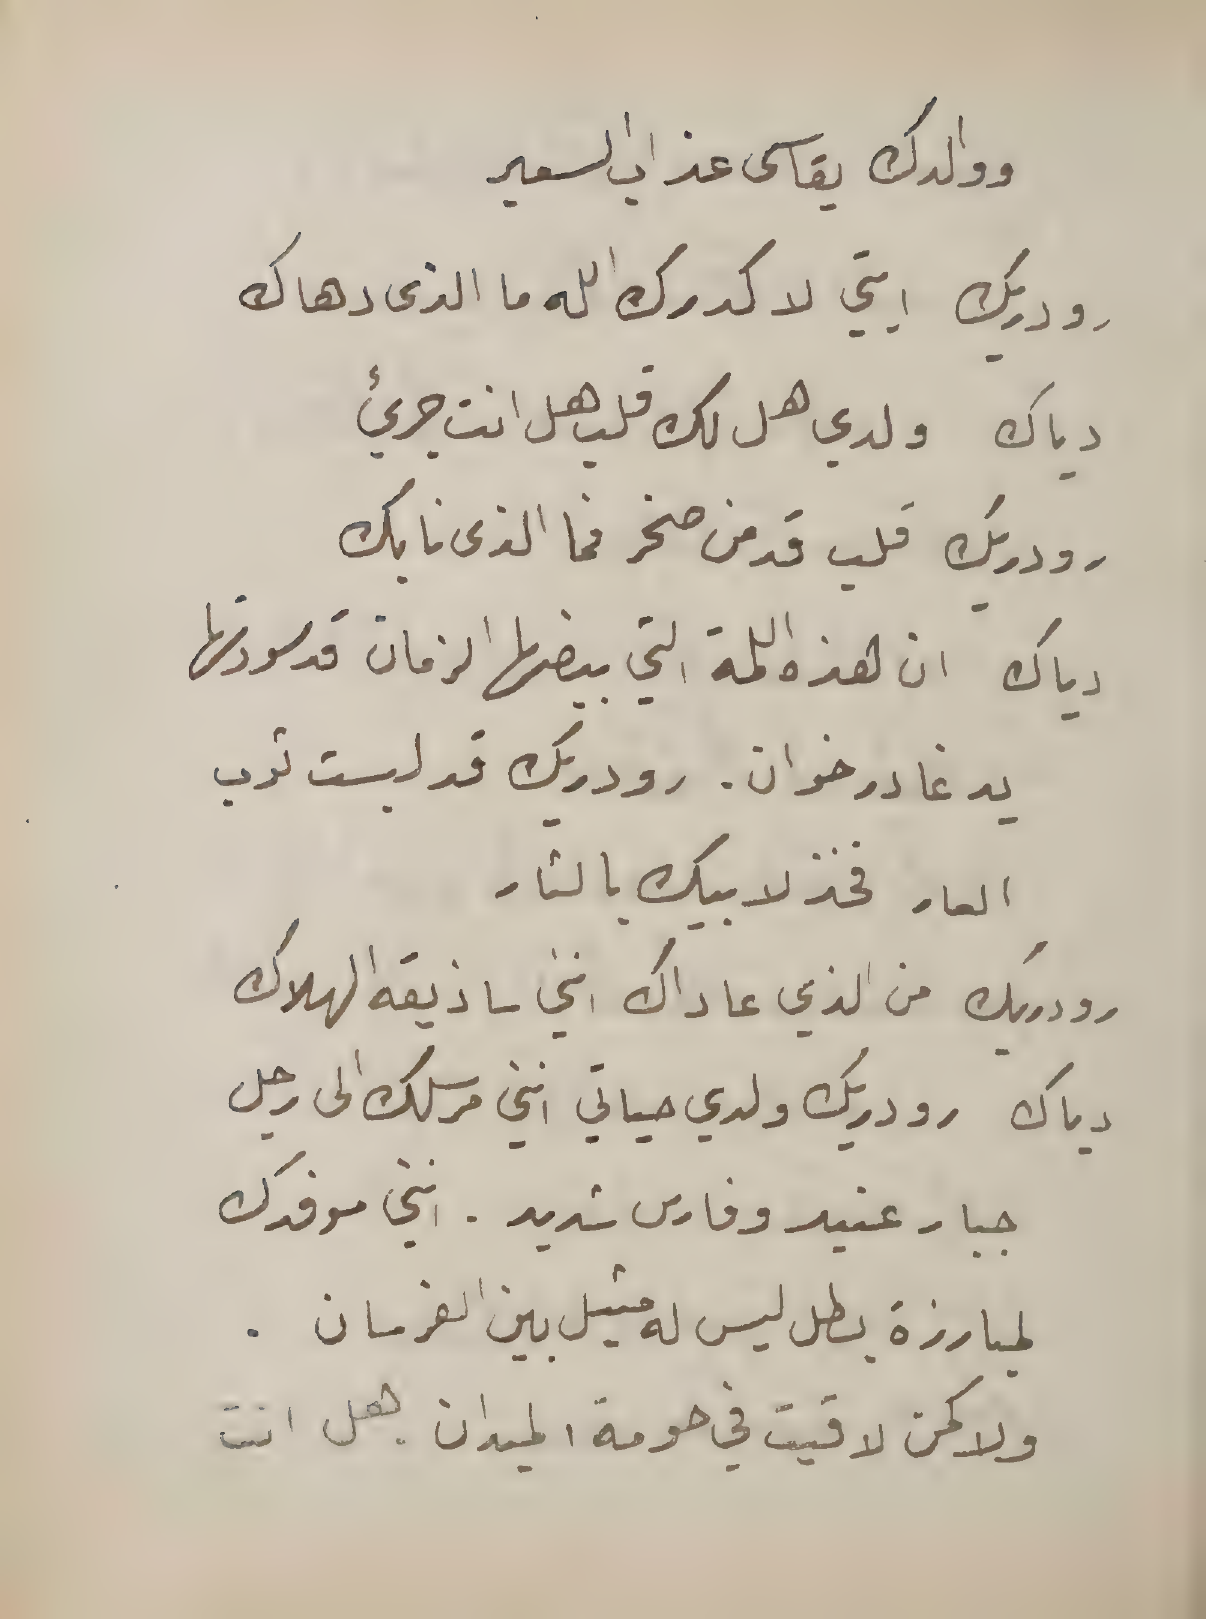 ووالدك يقاسى عذاب السعير
رودريك ابتي لا كدرك الله ما الذى دهاك
دياك ولدي هل لك قلب هل انت جريئ
رودريك قلب قد من صخر فما الذى نابك
دياك ان هذه اللمة التي بيضها الزمان قد سودتها
يد غادر خوان . رودريك قد لبست ثوب
العار فخذ لابيك بالثار
رودريك من الذي عاداك انني ساذيقه الهلاك
دياك رودريك ولدي حياتي انني مرسلك الى رجل
جبار عنيد وفارس شديد . انني موفدك
لمبارزة بطل ليس له مثيل بين الفرسان .
ولا كمن لاقيت في حومة الميدان فهل انت